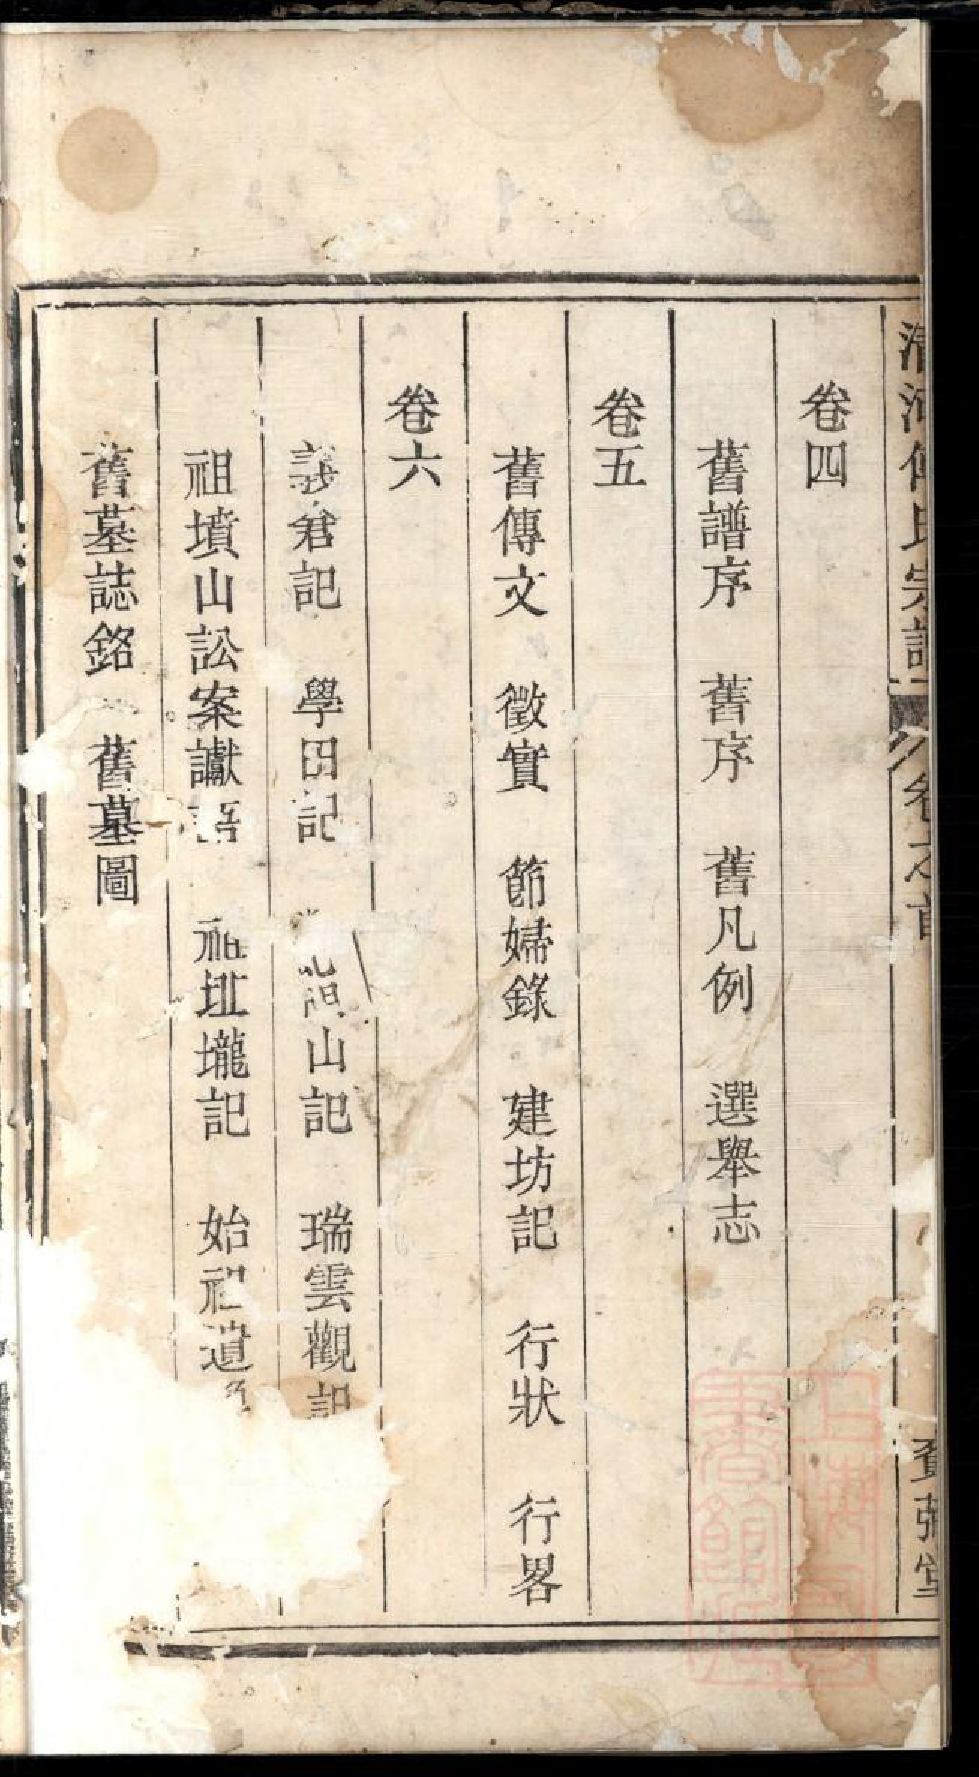 清河傅氏宗譜 卷之首 賚弼堂
卷四
舊譜序 舊序 舊凡例 選舉志
卷五
舊傳文 徵實 節婦錄 建坊記 行狀 行畧
卷六
義倉記 學田記 山記 瑞雲觀記
祖墳山訟案讞語 祖坵壠記 始祖遺
舊墓誌銘 舊墓圖